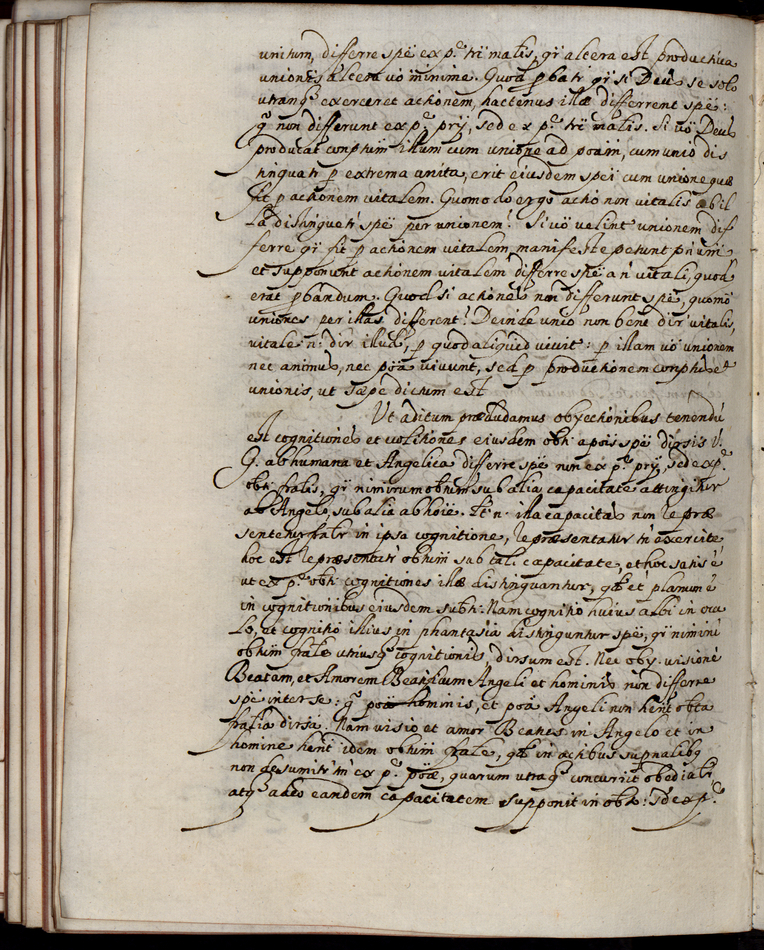 unitum, differre spē ex p.ᵉ trī malis, qr̄ altera est productiva
unionis altera vō minime. Quod pbatr qr̄ si Deus se solo
utranq; exerceret actionem, hactenus illæ differrent spē:
q̄ non differunt ex p.ᵉ prij, sed ex p.ᵉ trī malis. Si vō Deus
producat conptum illum cum unione ad poām, cum unio dis
tinguatr p extrema unita, erit eiusdem spēi cum unione quæ
fit p actionem vitalem. Quomodo ergo actio non vitalis ab il
la distinguetr spē per unionem? Si vō velint unionem dif
ferre qr̄ fit p actionem vitalem, manifeste petunt prium
et supponunt actionem vitalem differre spē a n̄ vitali, quod
erat pbandum. Quod si actiones non differunt spē, quomō
uniones per illas different? Deinde unio non bene dir̄ vitalis,
vitale n: dir̄ illud, p quod aliquid vivit: p illam vō unionem
nec animus, nec poā vivunt, sed p productionem conptus et
unionis, ut sæpe dictum est
Ut aditum præcludamus obyectionibus tenendū
est cognitiones et volitiones eiusdem obti. a pois spē divsis V.
G. ab humana et Angelica differre spē non ex p.ᵉ prij, sed ex p.ᵉ
obti fralis, qr̄ nimirum obtum sub alia capacitate attingitur
ab Angelo, sub alia ab hoīe. Et n. illa capacitas non repræ
sentetur fralr in ipsa cognitione, repræsentatur tn̄ exercite
hoc est repræsentatr obtum sub tali capacitate, et hoc satis ē
ut ex p.ᵉ obti cognitiones illæ distinguantur, qd et planum ē
in cognitionibus eiusdem subti: Nam cognitio huius albi in ocu
lo, et cognitio illius in phantasia distinguntur spē, qr̄ nimirū
obtum frale utriusq; cognitionis divsum est. Nec oby. visionē
Beatam, et Amorem Beatificum Angeli et hominis non differre
spē inter se: q̄ poā hominis, et poā Angeli non hent obta
fralia divsa. Nam visio et amor Beatus in Angelo et in
homine hent idem obtum frale, qd in actibus supnalibq
non desumitr tn̄ ex p.ᵉ poæ, quarum utraq; concurrit obedialr
atq; adeo eandem capacitatem supponit in obto: sed ex p.ᵉ